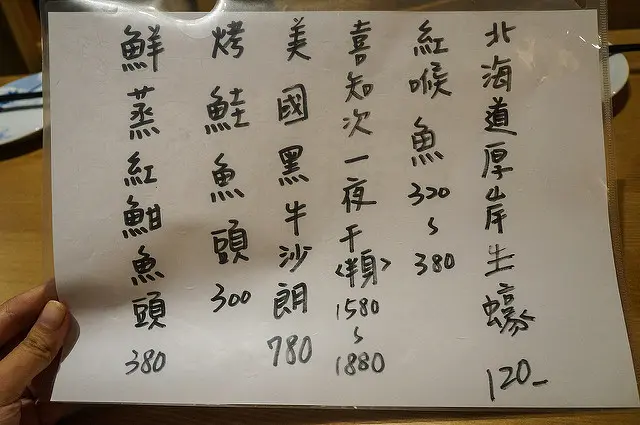 北海道厚岸生蠔 120-
紅喉魚 320~380
喜知次一夜干<半身> 1580~1880
美國黑牛沙朗 780
烤鮭魚頭 300
鮮蒸紅魽魚頭 380